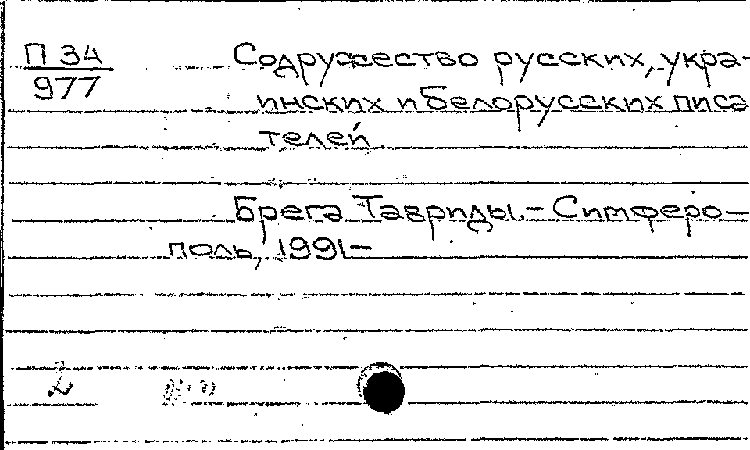 П 34
977
Содружество русских, укра-
инских и белорусских писа
телей
Брега Тавриды. - Симферо-
поль, 1991-
2